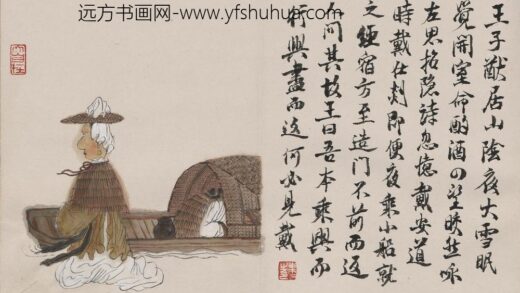 远方书画网-www.yfshuhua.com
王子猷居山陰夜大雪眠
覺開室命酌酒四望皎然咏
左思招隱詩忽憶戴安道
時戴在剡即便夜乘小船就
之經宿方至造門不前而返
人問其故王曰吾本乘興而
行興盡而返何必見戴